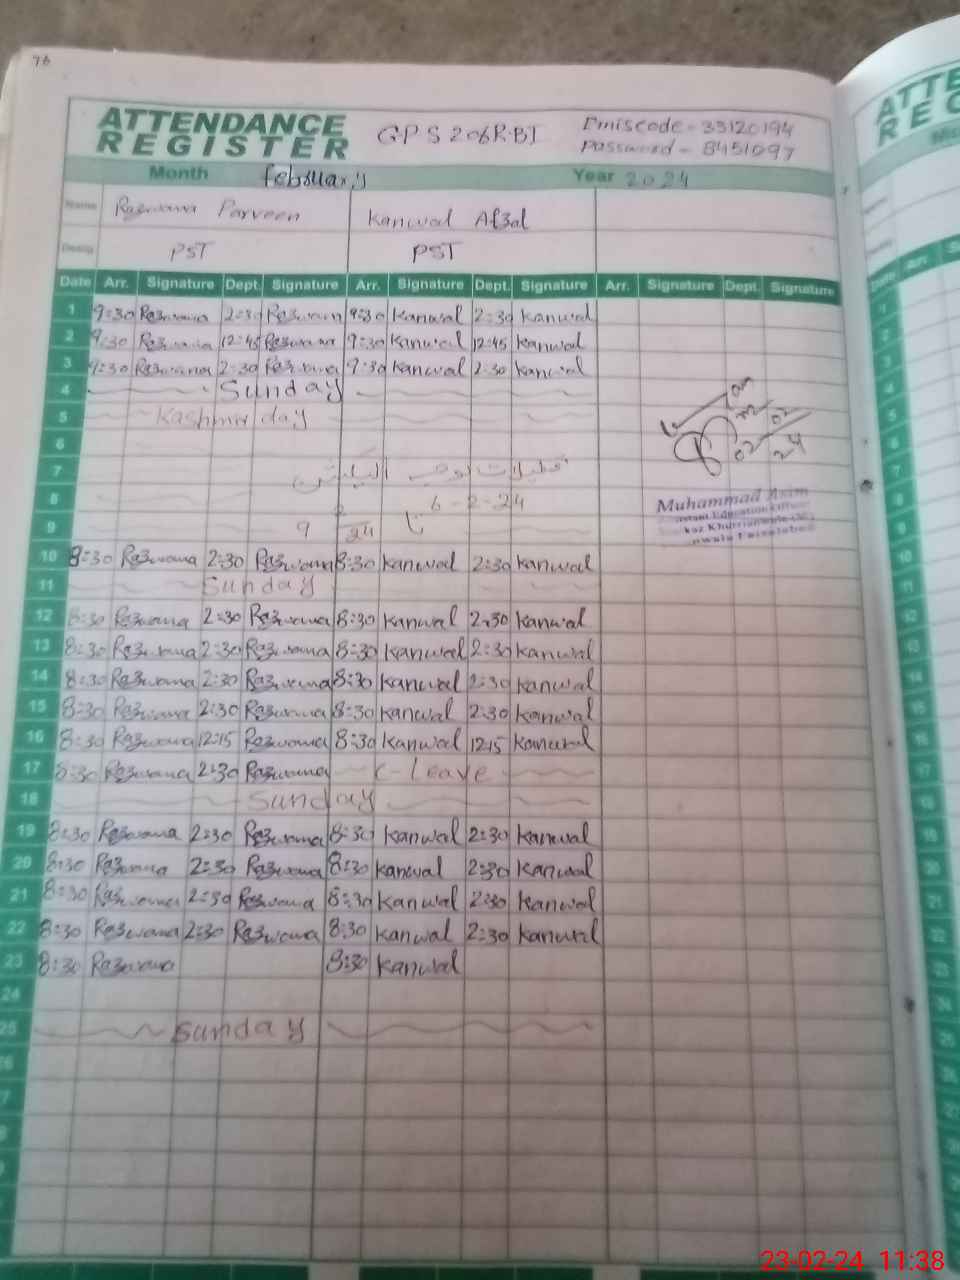 76
ATTENDANCE REGISTER
GPS 206 R.BI
Emiscode - 33120194
Password - 8451097
Month February Year 2024
Name Razwana Parveen Kanwal Afzal
Desig PST PST
Date Arr. Signature Dept. Signature Arr. Signature Dept. Signature Arr. Signature Dept. Signature
1 9:30 Razwana 2:30 Razwana 9:30 Kanwal 2:30 Kanwal
2 9:30 Razwana 12:45 Razwana 9:30 Kanwal 12:45 Kanwal
3 9:30 Razwana 2:30 Razwana 9:30 Kanwal 2:30 Kanwal
4 Sunday
5 Kashmir day
6
7 تعطیلات بوجہ الیکشن
8 6-2-24
9 9 2 24 تا
10 8:30 Razwana 2:30 Razwana 8:30 Kanwal 2:30 Kanwal
11 Sunday
12 8:30 Razwana 2:30 Razwana 8:30 Kanwal 2:30 Kanwal
13 8:30 Razwana 2:30 Razwana 8:30 Kanwal 2:30 Kanwal
14 8:30 Razwana 2:30 Razwana 8:30 Kanwal 2:30 Kanwal
15 8:30 Razwana 2:30 Razwana 8:30 Kanwal 2:30 Kanwal
16 8:30 Razwana 12:15 Razwana 8:30 Kanwal 12:15 Kanwal
17 8:30 Razwana 2:30 Razwana C-Leave
18 Sunday
19 8:30 Razwana 2:30 Razwana 8:30 Kanwal 2:30 Kanwal
20 8:30 Razwana 2:30 Razwana 8:30 Kanwal 2:30 Kanwal
21 8:30 Razwana 2:30 Razwana 8:30 Kanwal 2:30 Kanwal
22 8:30 Razwana 2:30 Razwana 8:30 Kanwal 2:30 Kanwal
23 8:30 Razwana 8:30 Kanwal
24
25 Sunday
02 02 24
Muhammad Asim
Assistant Education Officer
Khurrianwala
Faisalabad
23-02-24 11:38